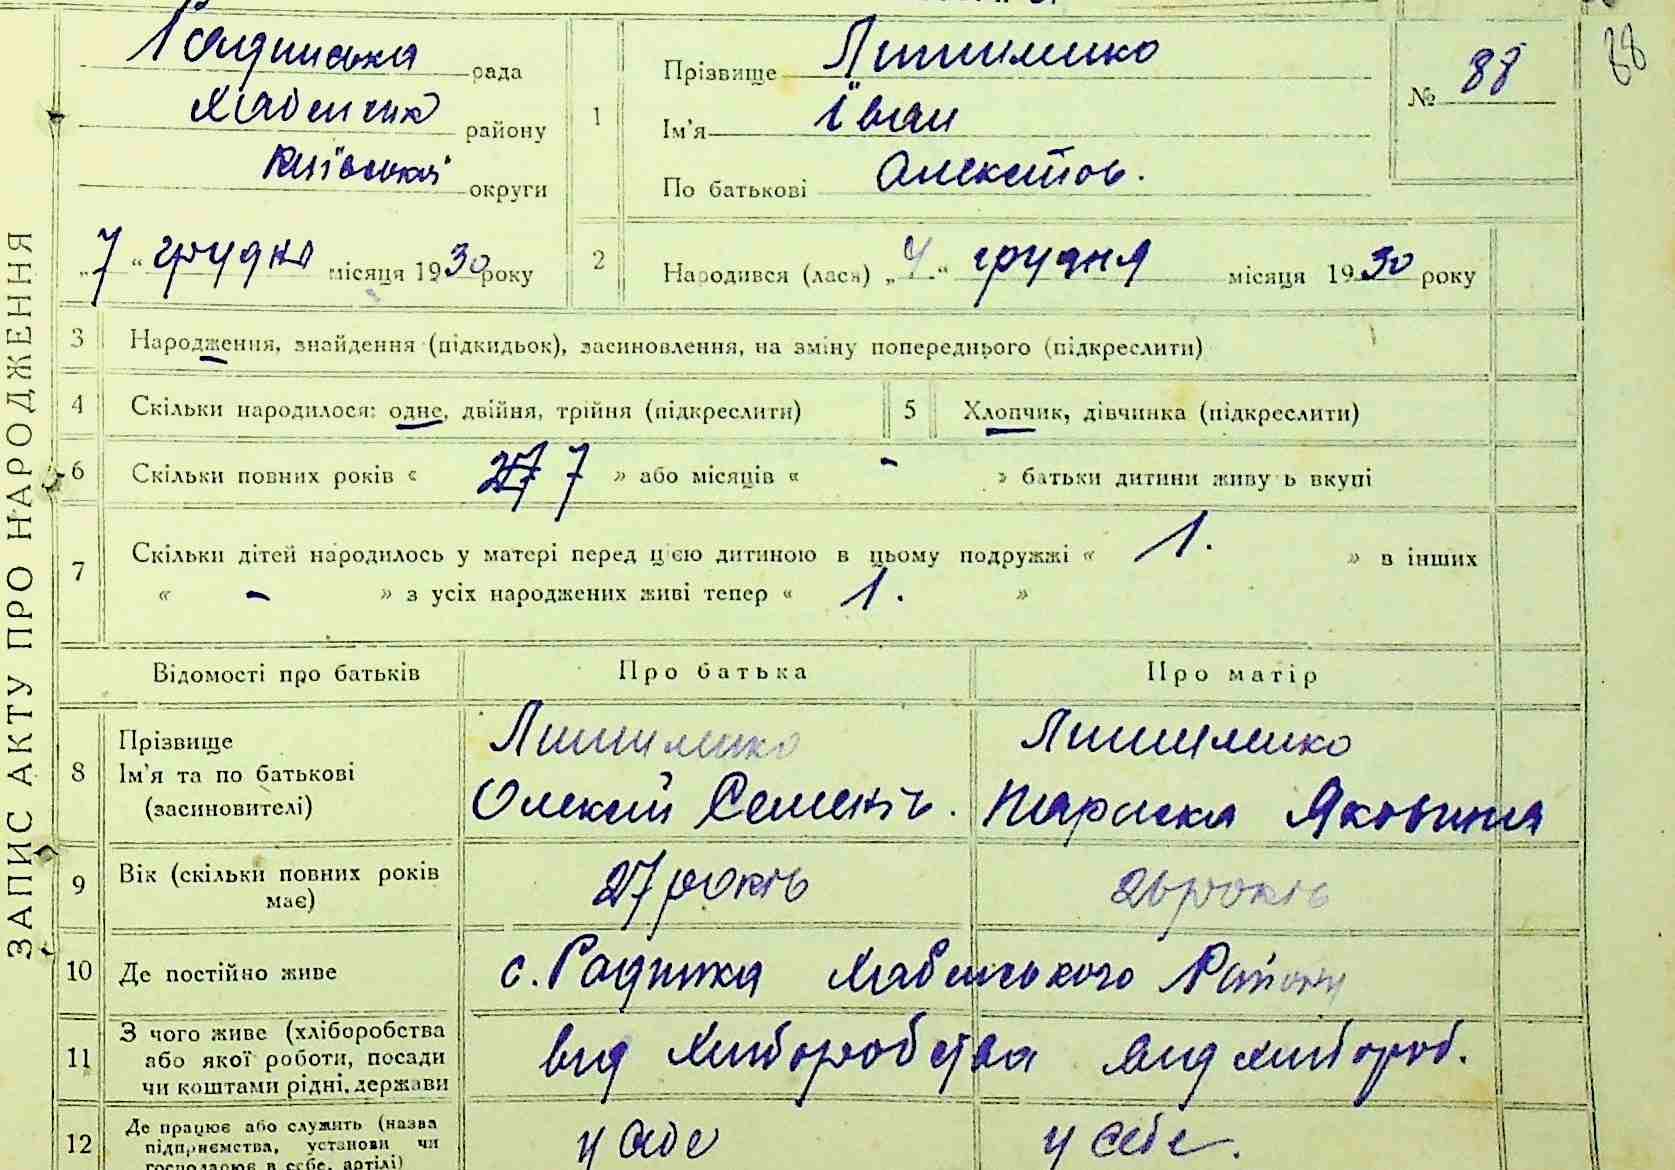 Радинська рада
Хабенськ району
Київської округи
„7“ грудня місяця 1930 року
1
Прізвище
Ім'я Іван
По батькові Олексійов.
№ 88
88
2
Народився (лася) „4“ грудня місяця 1930 року
ЗАПИС АКТУ ПРО НАРОДЖЕННЯ
3 Народження, знайдення (підкидьок), засиновлення, на зміну попереднього (підкреслити)
4 Скільки народилося: одне, двійня, трійня (підкреслити) 5 Хлопчик, дівчинка (підкреслити)
6 Скільки повних років « 7 » або місяців « - » батьки дитини живуть вкупі
7 Скільки дітей народилось у матері перед цією дитиною в цьому подружжі « 1. » в інших
« - » з усіх народжених живі тепер « 1. »
Відомості про батьків Про батька Про матір
8 Прізвище
Ім'я та по батькові
(засиновителі)
Олексій Семенів. Параска Яковина
9 Вік (скільки повних років
має)
27 років 26 років
10 Де постійно живе с. Радинка Хабенського Району
11 З чого живе (хліборобства
або якої роботи, посади
чи коштами рідні, держави
від хліборобства від хлібороб.
12 Де працює або служить (назва
підприємства, установи чи
господарює в себе, артілі)
у себе у себе.